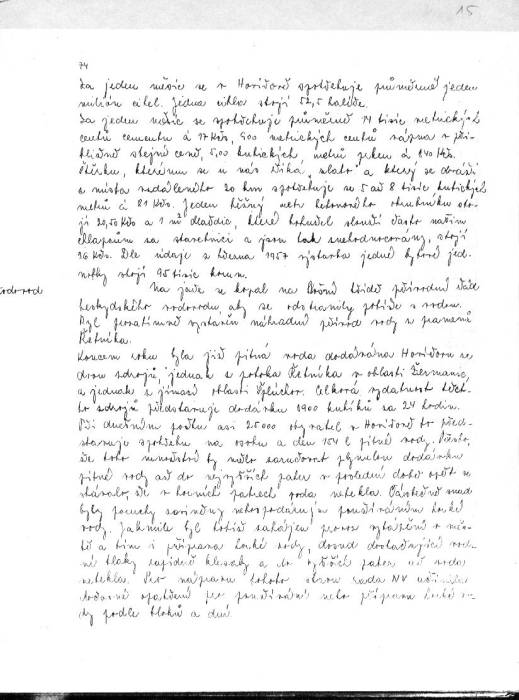 15
74
Za jeden měsíc se v Havířově spotřebuje průměrně jeden
milion cihel. Jedna cihla stojí 52,5 haléře.
Za jeden měsíc se spotřebuje průměrně 14 tisíc metrických
centů cementu á 17 Kčs, 500 metrických centů vápna v při-
bližně stejné ceně, 500 kubických metrů písku á 240 Kčs.
Štěrku, kterému se u nás říká "zlato" a který se dováží
z místa vzdáleného 20 km spotřebuje se 5 až 8 tisíc kubických
metrů á 81 Kčs. Jeden běžný metr betonového obrubníku sto-
jí 20,50 Kčs a 1 m² dlaždic, které bohužel slouží často našim
chlapcům za staveniště a jsou tak znehodnocovány, stojí
26 Kčs. Dle údaje z března 1957 výstavba jedné bytové jed-
notky stojí 95 tisíc korun.
vodovod
Na jaře se kopal na třídě přívodní řád
beskydského vodovodu, aby se odstranily potíže s vodou.
Byl provizorně vystavěn náhradní přívod vody z pramenů
Řetníka.
Koncem roku byla již pitná voda dodávána Havířovu ze
dvou zdrojů, jednak z potoka Řetníka v oblasti Žermanic,
a jednak z jímací oblasti Vplúchov. Celková vydatnost těch-
to zdrojů představuje dodávku 1900 kubíků za 24 hodin.
Při dnešním počtu asi 25000 obyvatel v Havířově to před-
stavuje spotřebu na osobu a den 104 l pitné vody. Přesto,
že toto množství by mělo zaručovat plynulou dodávku
pitné vody až do nejvyšších pater v poslední době opět se
stávalo, že v horních patrech voda netekla. Částečně snad
byly poruchy zaviněny nehospodárným používáním teplé
vody. Jakmile byl totiž zahájen provoz vytápění v měs-
tě a tím i příprava teplé vody, dosud dostačující vod-
ní tlaky rapidně klesly a do vyšších pater už voda
netekla. Pro nápravu tohoto stavu rada NV učinila
dočasné opatření pro používání nebo přípravu teplé vo-
dy podle bloků a dní.